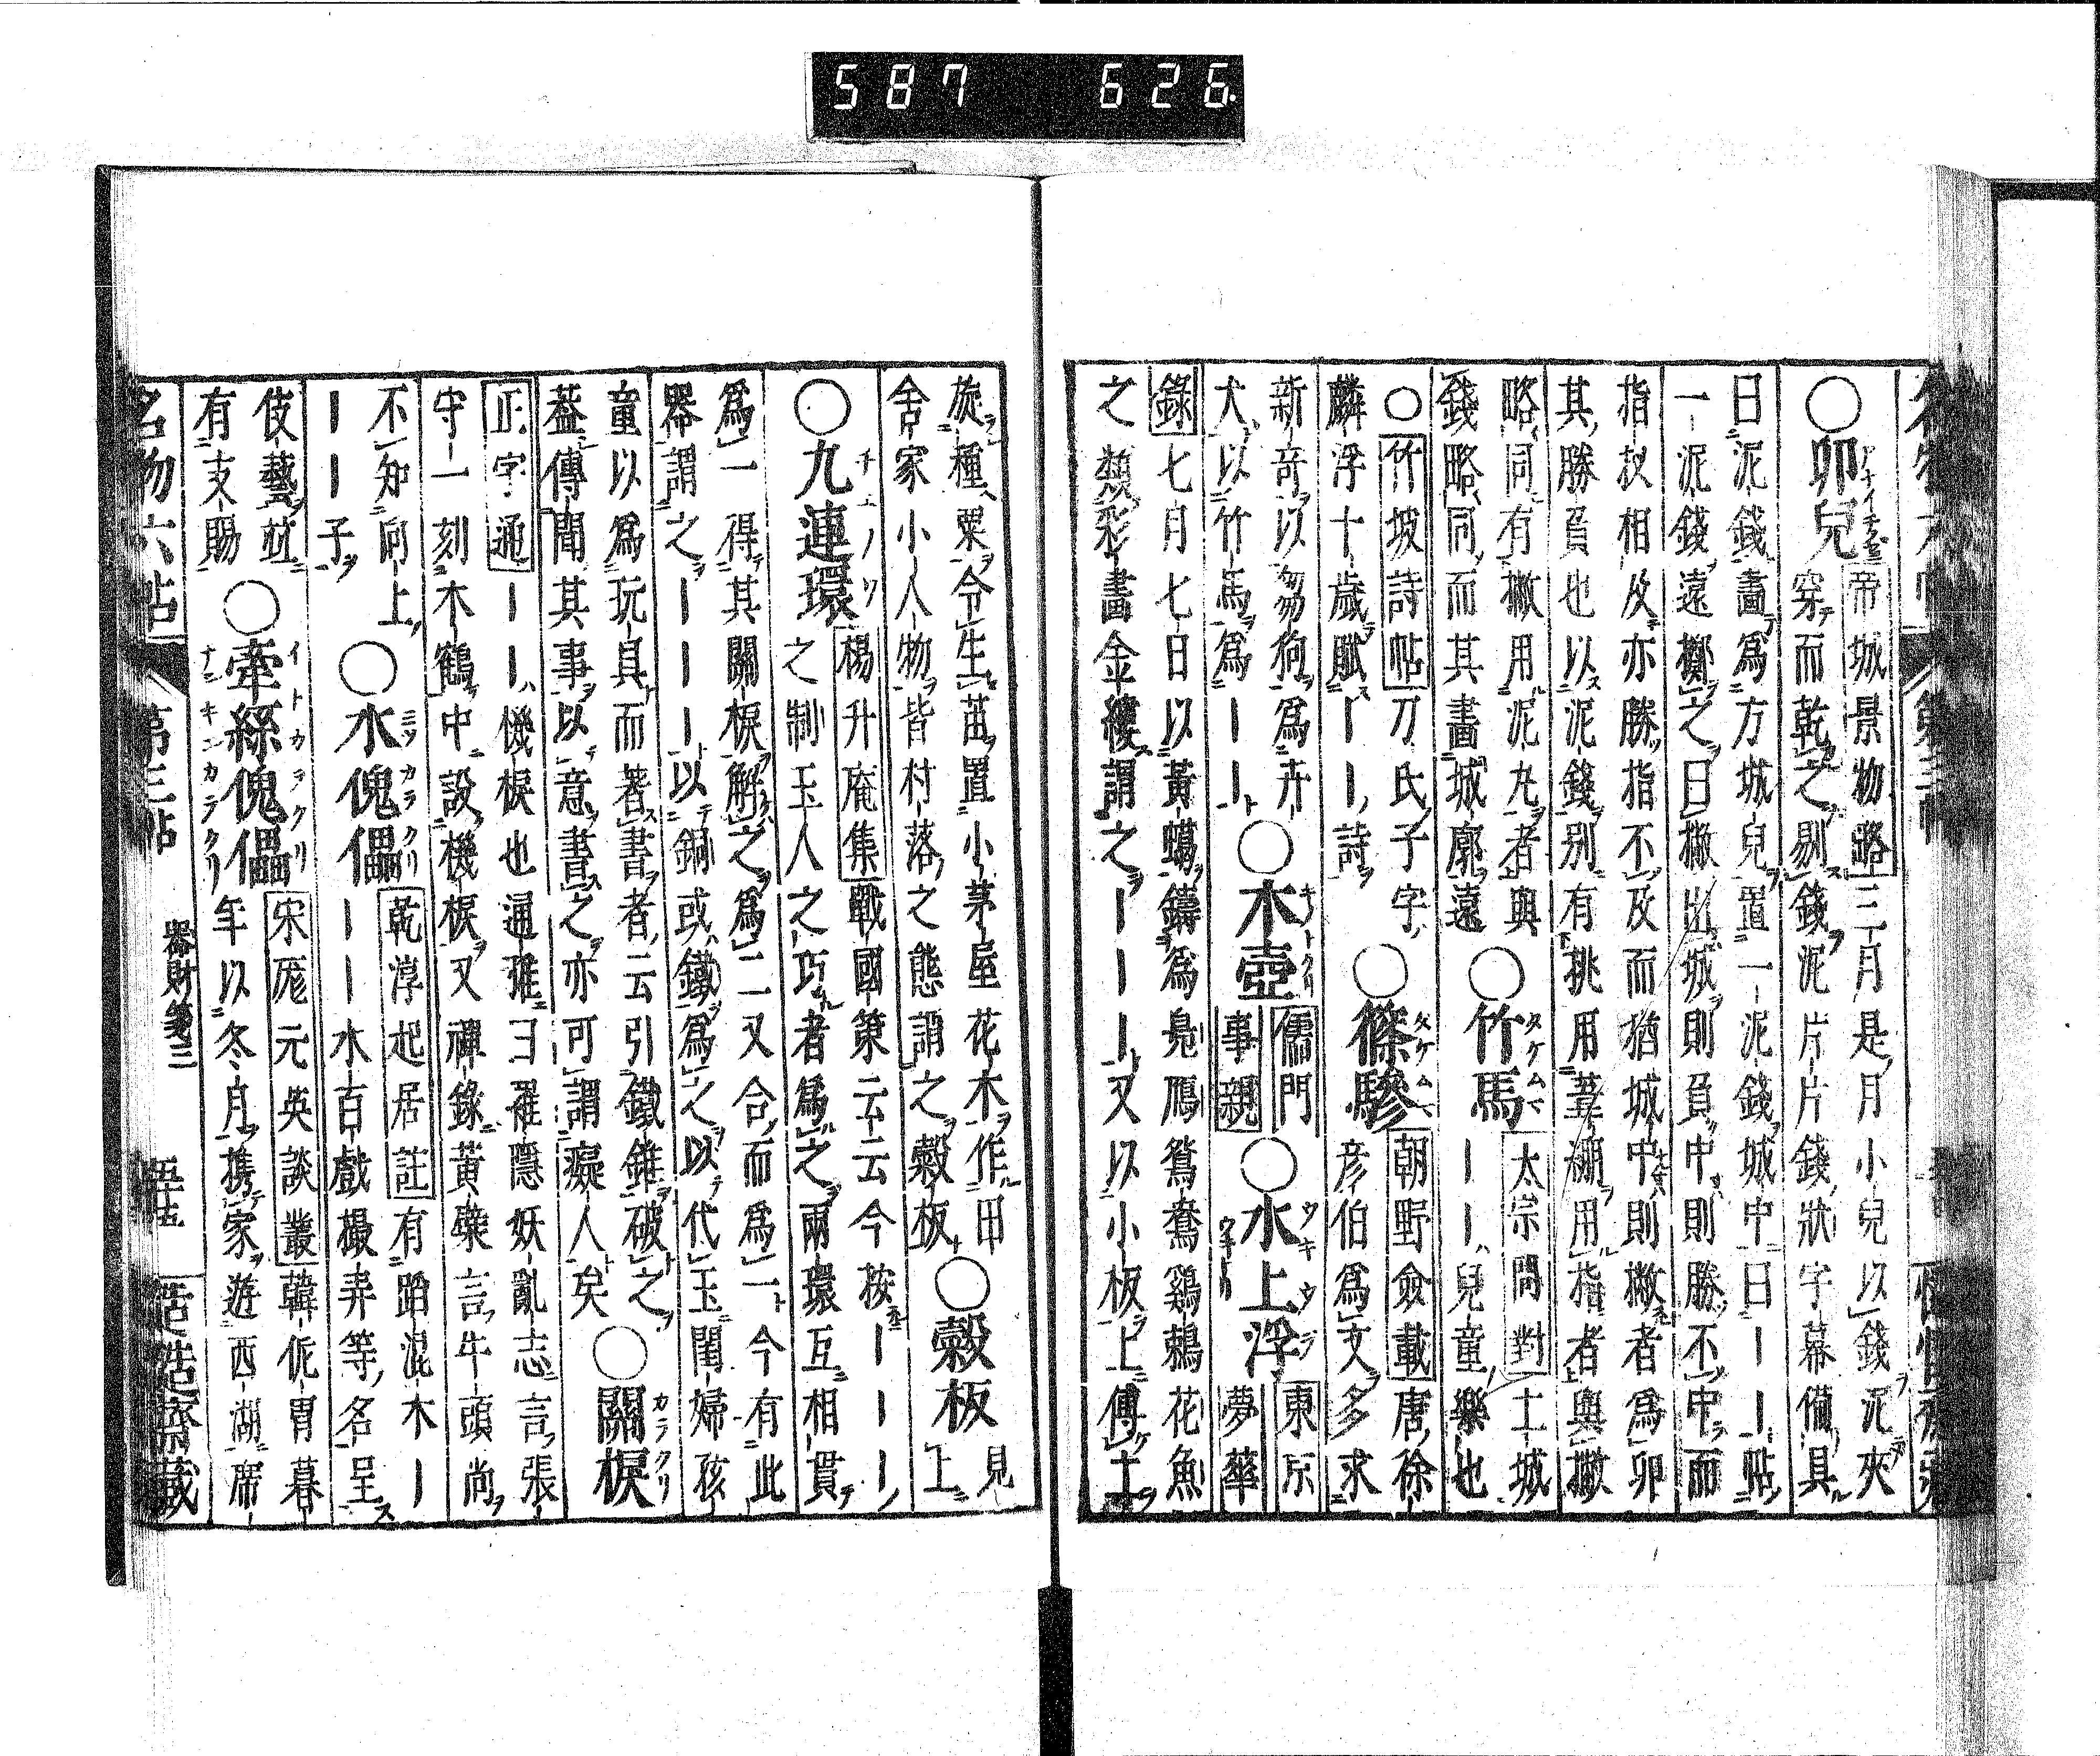 587 626
○卯兒 帝城景物略 三月是月小兒以錢泥夾
穿而乾之剔錢泥片片錢狀字幕備具
曰泥錢畫為方城兒置一泥錢城中曰｜｜帖
一泥錢遠擲之曰撇出城則負中則勝不中而
指扠相及亦勝指不及而猶城中則撇者為卯
其勝負也以泥錢別有挑用葦棚用指者與撇
略同有撇用泥丸者與
錢略同而其畫城廓遠
○竹馬 太宗問對 土城
｜｜兒童樂也
○竹坡詩帖 刀氏子字
麟浮十歲賦｜｜詩
○篠驂 朝野僉載 唐徐
彦伯為文多求
新奇以芻狗為卉
犬以竹馬為｜｜
○木壺 儒門
事親
○水上浮 東京
夢華
錄 七月七日以黃蠟鑄為鳧鴈鴛鴦鷄鶒花魚
之類彩畫金縷謂之｜｜｜又以小板上傅土
旋種粟令生苗置小茅屋花木作田
舍家小人物皆村落之態謂之穀板
○穀板 見
上
○九連環 楊升庵集 戰國策云云今按｜｜｜
之制玉人之巧者為之兩環互相貫
為一得其關棙解之為二又合而為一今有此
器謂之｜｜｜以銅或鐵為之以代玉閨婦孩
童以為玩具而著書者云引鐵錐破之
蓋傳聞其事以意書之亦可謂癡人矣
○關棙
正字通 ｜｜機棙也通雅曰羅隱妖亂志言張
守一刻木鶴中設機棙又禪錄黃檗言牛頭尚
不知向上
｜｜子
○水傀儡 乾淳起居註 有蹈混木｜
｜｜水百戲撮弄等名呈
伎藝並
有支賜
○牽絲傀儡 宋厖元英談叢 韓侂胄暮
年以冬月攜家遊西湖席
名物六帖 第三帖 器財箋三 五十五